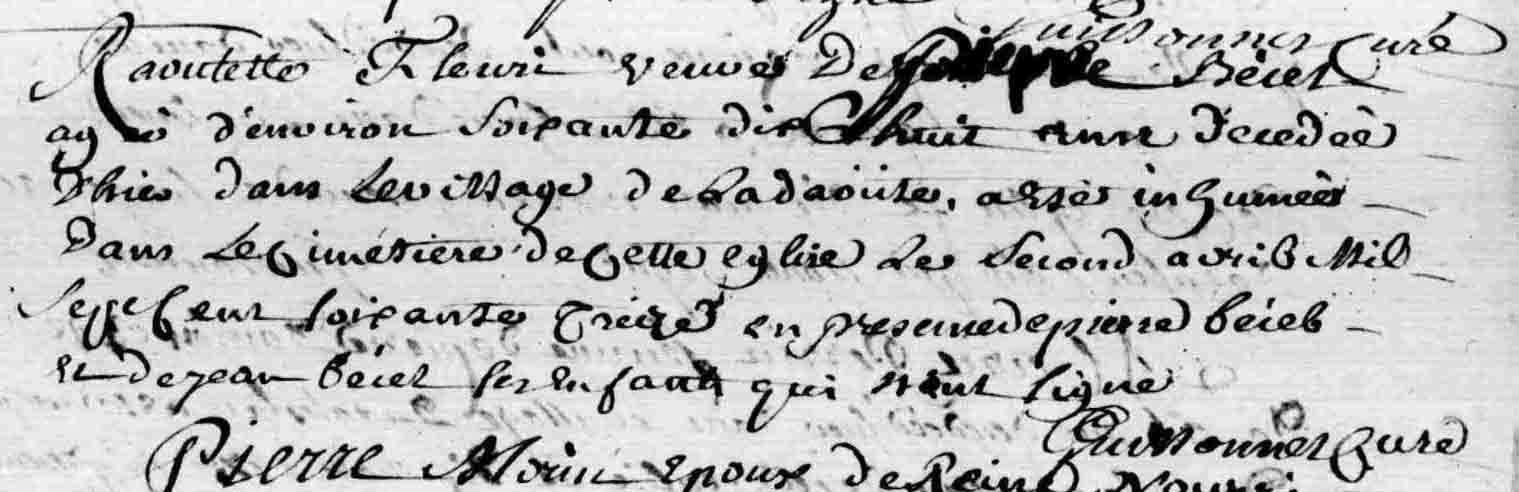 Guissonnet Curé
Raoulette Fleuri veuve De pierre Béciet
agée d'environ soixante dix huit ans Décedée
d'hier dans Le village de Ladaoüste, a été inhumée
Dans Le Cimétiere de Cette eglise Le second avril Mil
sept Cent soixante treize en presence de pierre béciet
et de jean béciet ses Enfants qui n'ont signé
Guissonnet Curé
Pierre Morin Epoux de Reine